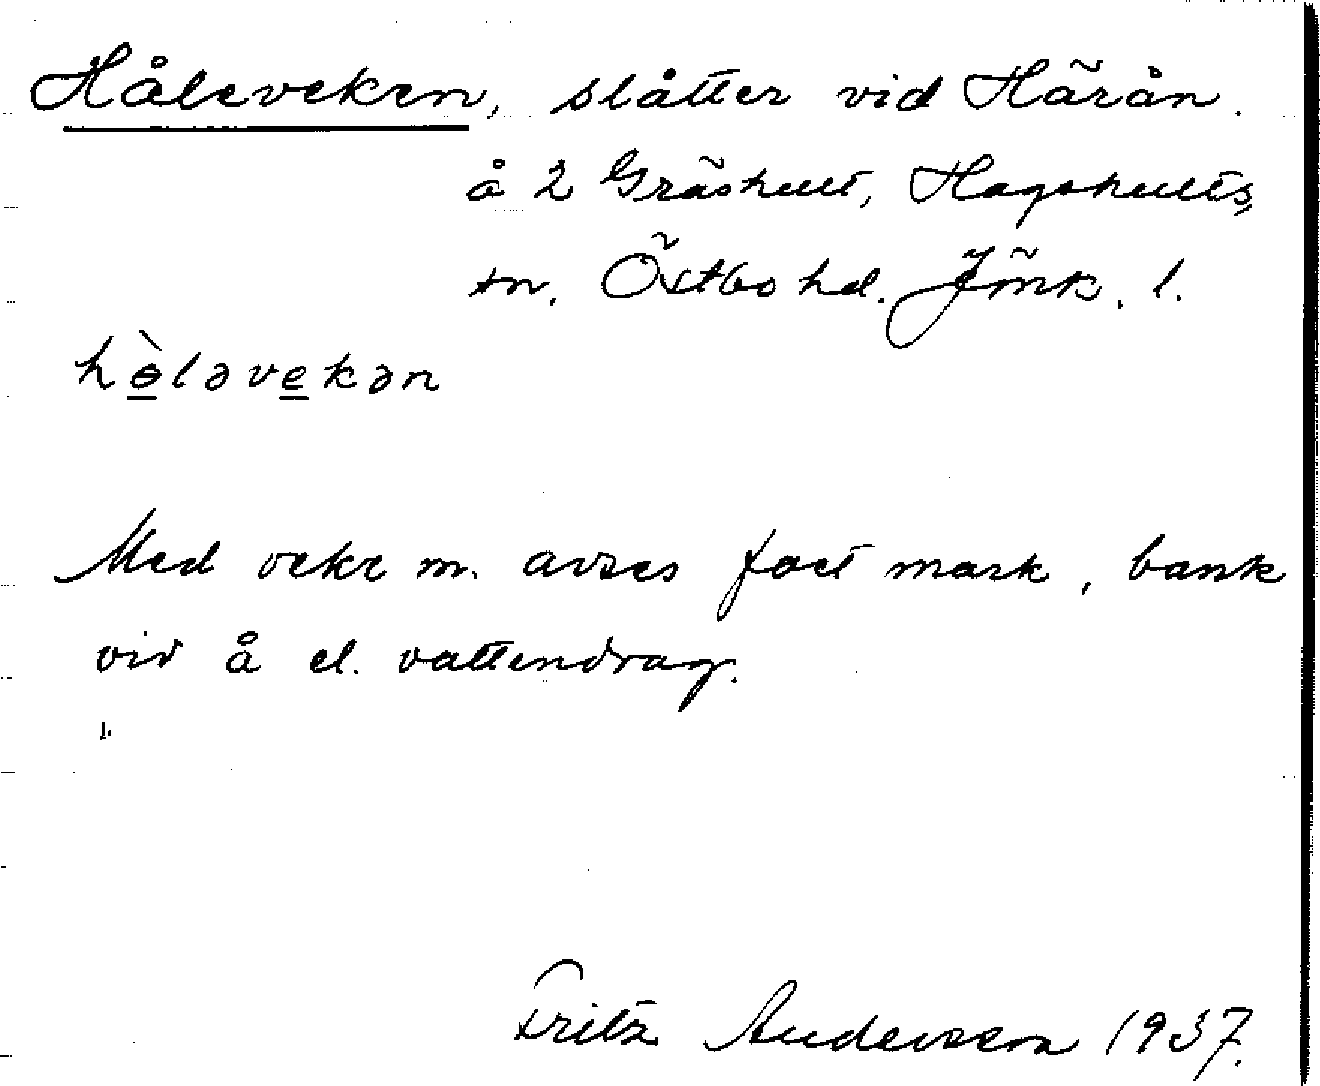 Håleveken, slåtter vid Härån.
å 2 Gräshult, Hagshults
sn, Östbo hd. Jönk. l.
hòlavekan
Med veke m. avses fast mark, bank
vid å el. vattendrag.
Fritz Andersson 1937.